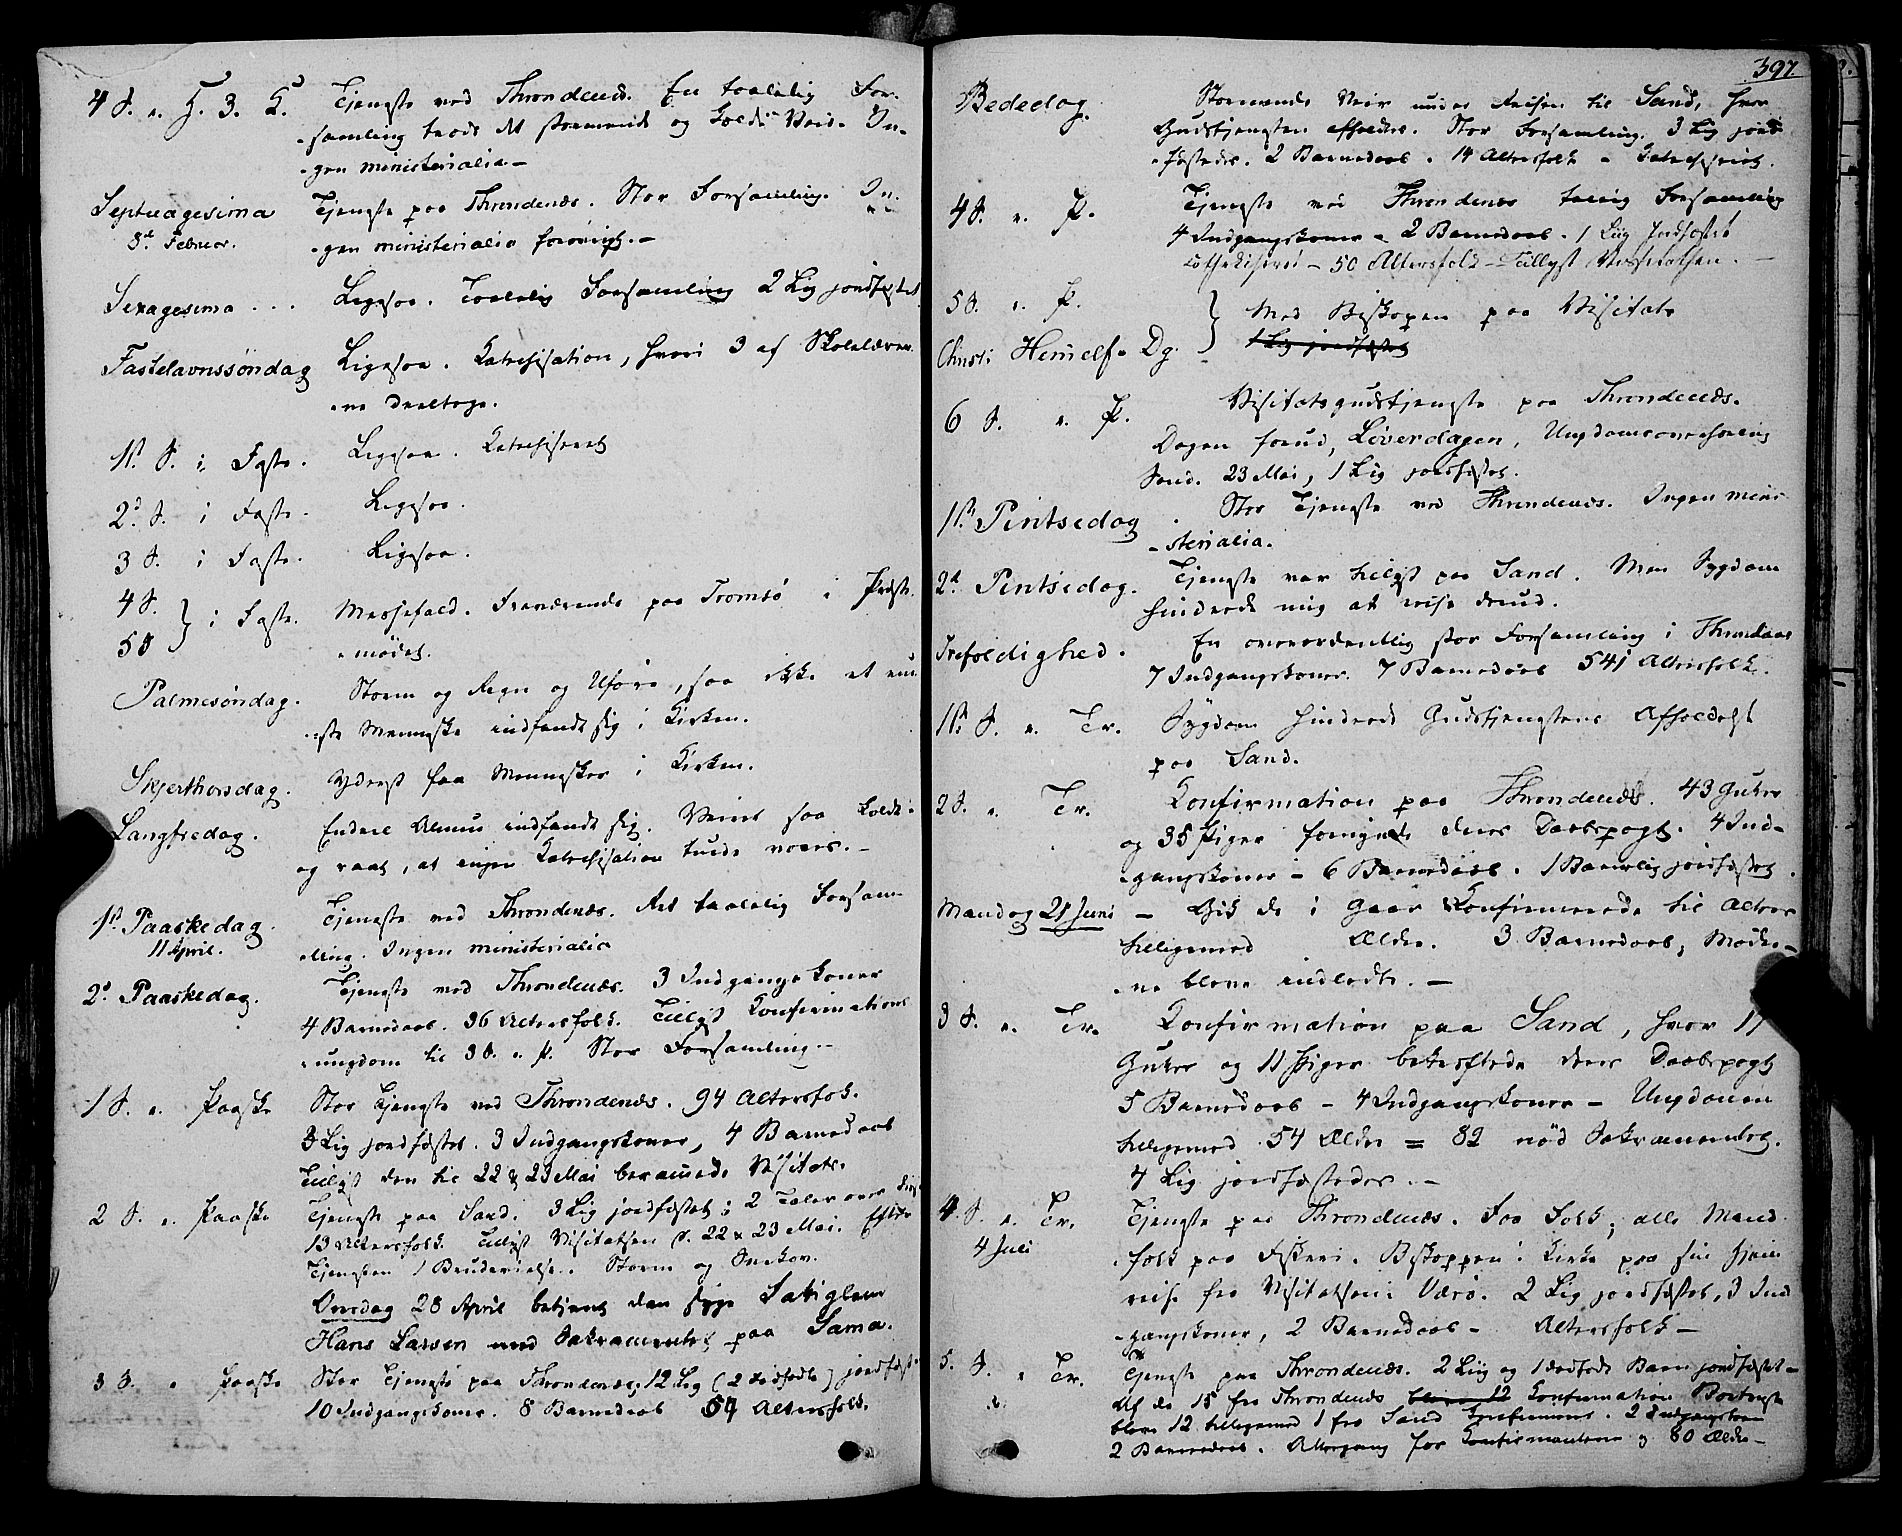 4 S. e. H. 3. K. Tjeneste ved Throndenæs. En taalelig For-
samling trods det stormende og kolde Veir. In-
gen ministerialia –
Septuagesima Tjeneste paa Throndenæs. Stor Forsamling. In-
8de Februar. gen ministerialia forøvrigt. –
Sexagesima ... Ligesaa. Taalelig Forsamling 2 Lig jordfæstet
Fastelavnssøndag Ligesaa. Katechisation, hvori 3 af Skolelærer
ne deeltoge.
1st. S. i Faste. Ligesaa. Katechiseret
2d. S. i Faste. Ligesaa.
3 S. i Faste. Ligesaa.
4 S. } i Faste. Messefald. Fraværende paa Tromsø i Præste-
5 S mødet.
Palmesøndag. Storm og Regn og Uføre, saa ikke et ene-
ste Menneske indfandt sig i Kirken.
Skjerthorsdag. Yderst faa Mennesker i Kirken.
Langfredag. Endeel Almue indfandt sig. Veiret saa koldt
og raat, at ingen Katechisation turde voves. –
1st Paaskedag. Tjeneste ved Throndenæs. Ret taalelig Forsam-
11 April. ling. Ingen ministerialia
2d Paaskedag. Tjeneste ved Throndenæs. 3 Indgangskoner
4 Barnedaab. 36 Altersfolk. Tillyst Konfirmations-
ungdom til 3 S. e. P. Stor Forsamling –
1 S. e. Paaske Stor Tjeneste ved Throndenæs. 94 Altersfolk.
3 Lig jordfæstet. 3 Indgangskoner, 4 Barnedaab
Tillyst den til 22 & 23 Mai beramede Visitats.
2 S. e. Paaske Tjeneste paa Sand. 3 Lig jordfæstet; 2 Taler over
13 Altersfolk. Tillyst Visitatsen d. 22 & 23 Mai. Efter
Tjenesten 1 Brudevielse. Storm og Snekov.
Onsdag 28 April betjent den syge
Hans Larsen med Sakramentet paa Sama.
3 S. e. Paaske Stor Tjeneste paa Throndenæs, 12 Lig (2 dødfødte) jordfæst.
10 Indgangskoner. 8 Barnedaab 54 Altersfolk.
397
Bededag. Stormende Veir under Reisen til Sand, hvor
Gudstjenesten afholdtes. Stor Forsamling. 3 Lig jord-
fæstedes. 2 Barnedaab. 14 Altersfolk – Katechiseret.
4 S. e. P. Tjeneste ved Throndenæs talrig Forsamling
4 Indgangskoner – 2 Barnedaab. 1 Liig Jordfæstet
Cathekiseret – 50 Altersfolk – Tillyst Visitatsen. –
5 S. e. P. } Med Biskopen paa Visitats
Christi Himelf. Dg. 1 Lig jordfæstet
6 S. e. P. Visitatsgudstjeneste paa Throndenæs.
Dagen forud, Løverdagen, Ungdomsoverhøring
Sønd. 23 Mai, 1 Lig jordfæstet.
1st. Pintsedag . Stor Tjeneste ved Throndenæs. Ingen mini-
sterialia.
2d Pintsedag. Tjeneste var tillyst paa Sand. Men Sygdom
hindrede mig at reise derud.
Trefoldighed. En overordentlig stor Forsamling i Throndenæs
7 Indgangskoner. 7 Barnedaab 541 Altersfolk.
1st S. e. Tr. Sygdom hindrede Gudstjenestens Afholdelse
paa Sand.
2 S. e. Tr. Konfirmation paa Throndenæs. 43 Gutter
og 35 Piger fornyede deres Daabspagt. 4 Ind-
gangskoner – 6 Barnedaab. 1 Barnelig jordfæstet.
Mandag 21 Juni – Gik de i Gaar Konfirmerede til Alters
tilligemed Ældre. 3 Barnedaab, Mødre-
ne bleve indledte. –
3 S. e. Tr. Konfirmation paa Sand, hvor 17
Gutter og 11 Piger bekræftede deres Daabspagt
5 Barnedaab – 4 Indgangskoner – Ungdomen
tilligemed 54 Ældre = 82 nød Sakramentet.
4 Lig jordfæstedes. –
4. S. e. Tr. Tjeneste paa Throndenæs. Faa Folk; alle Mand-
4 Juli folk paa Fiskeri. Biskoppen i Kirke paa sin Hjem-
reise fra Visitatsen i Værø. 2 Lig jordfæstet, 3 Ind-
gangskoner, 2 Barnedaab – Altersfolk –
5. S. e. Tr. Tjeneste paa Throndenæs. 2 Liig og 1 dødfødt Barn jordfæstet –
Af de 15 fra Throndenæs bleve 12 Konfirmation
bleve 12 tilligemed 1 fra Sand Konfirmeret. 2 Indgangskoner
2 Barnedaab. Altergang for Konfirmanterne og 80 Ældre –